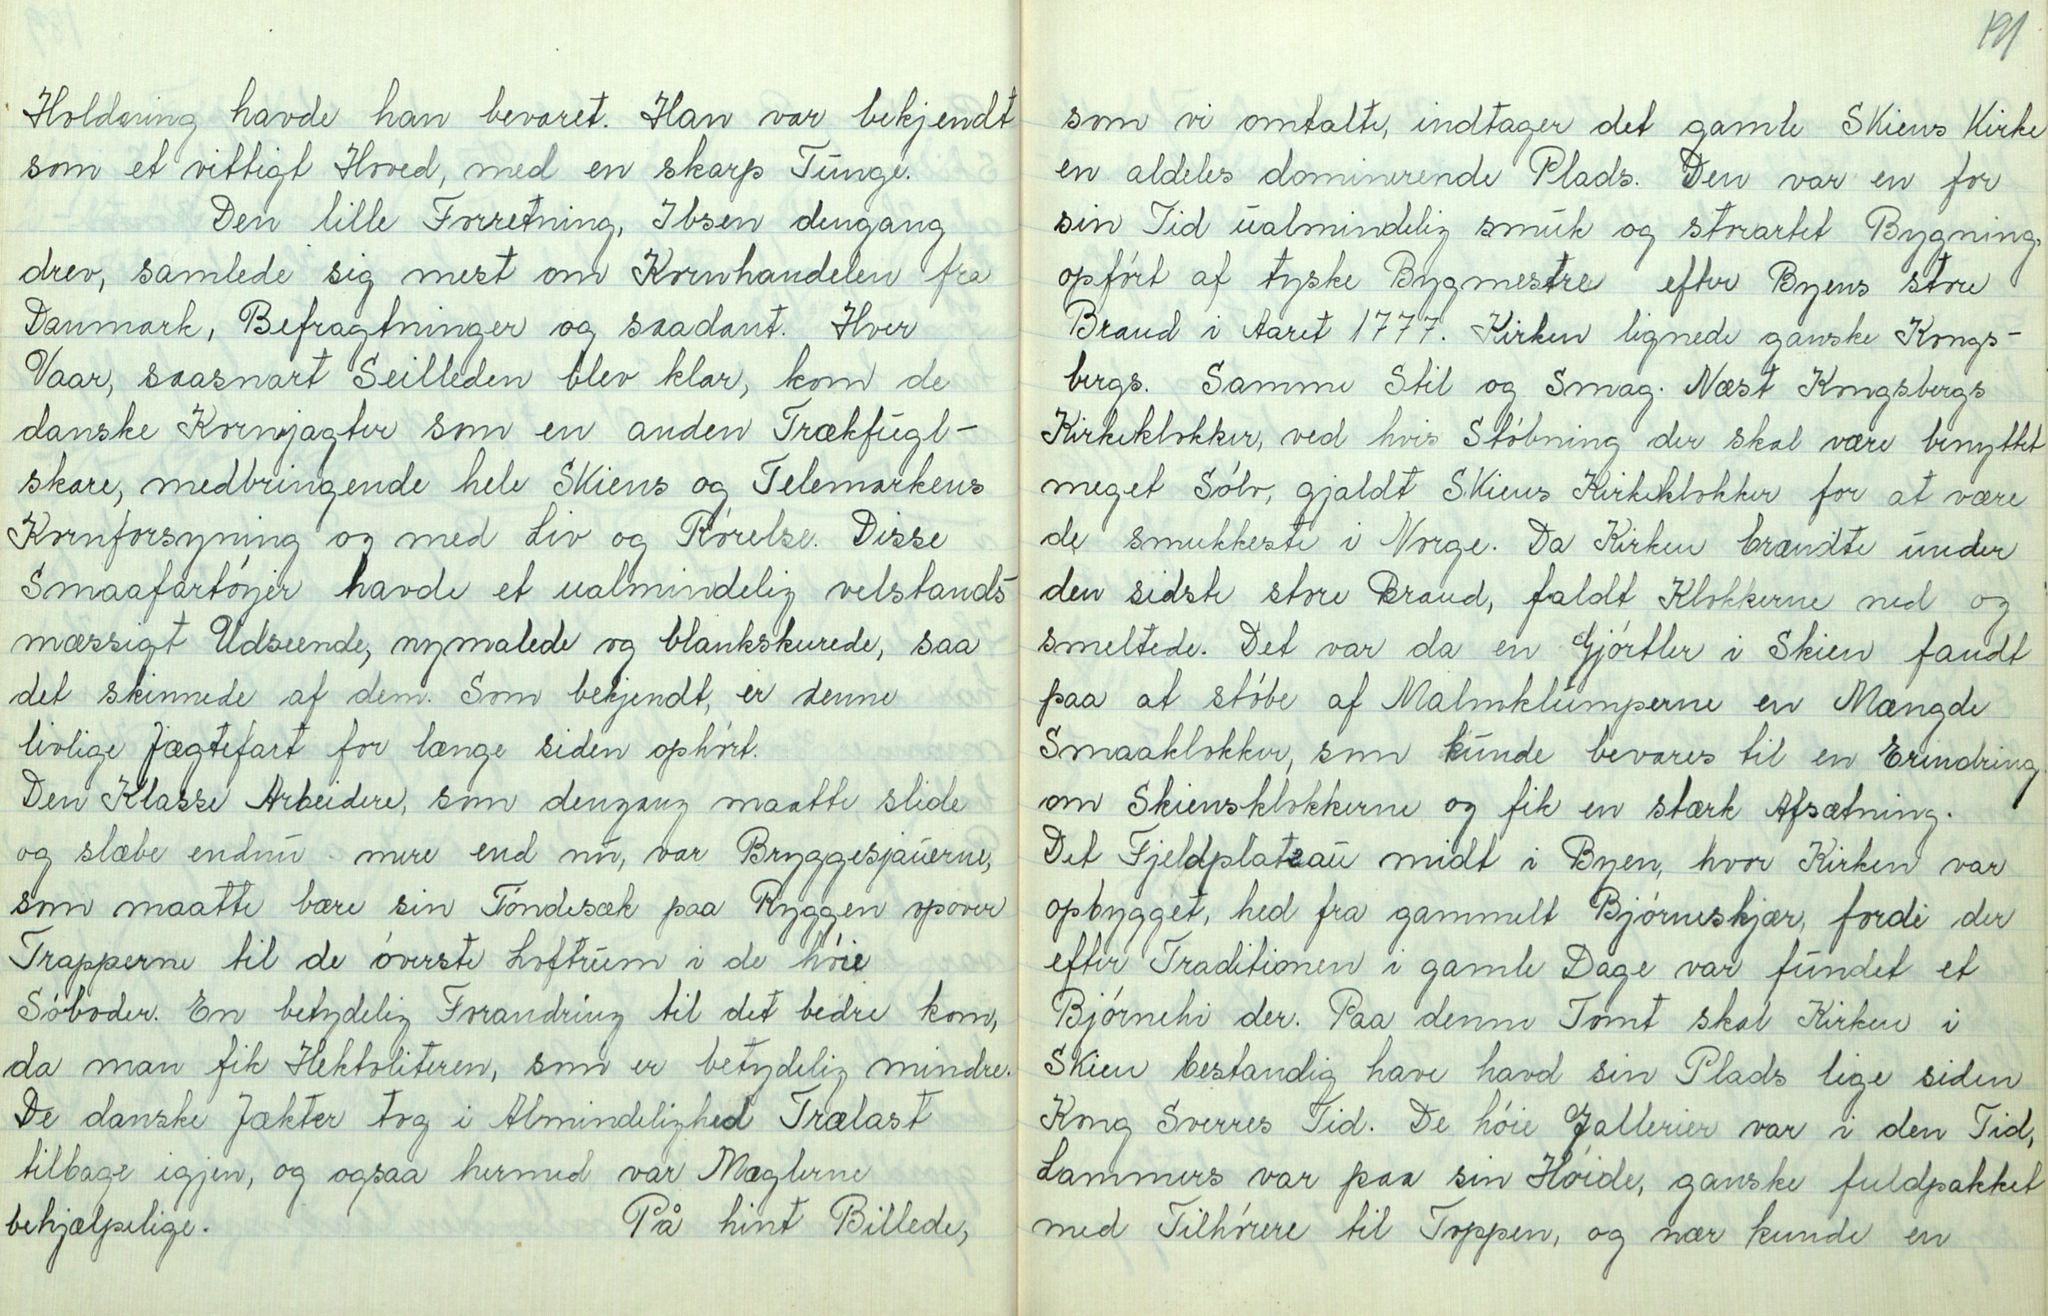 Holdning havde han bevaret. Han var bekjendt
som et vittigt Hoved, med en skarp Tunge.
Den lille Forretning, Ibsen dengang
drev, samlede sig mest om Kornhandelen fra
Danmark, Befragtninger og saadant. Hver
Vaar, saasnart Seilleden blev klar, kom de
danske Kornjagter som en anden Trækfugl-
skare, medbringende hele Skiens og Telemarkens
Kornforsyning og med Liv og Rörelse. Disse
Smaafartöyer havde et ualmindelig velstands-
mæssigt Udseende, nymalede og blankskurede, saa
det skinnede af dem. Som bekjendt, er denne
livlige Jægtefart for længe siden ophört.
Den Klasse Arbeidere, som dengang maatte slide
og slæbe endnu mere end nu, var Bryggesjauerne,
som maatte bære sin Töndesæk paa Ryggen opover
Trapperne til de överste Loftrum i de höie
Söboder. En betydelig Forandring til det bedre kom,
da man fik Hektoliteren, som er betydelig mindre.
De danske Jækter tog i Almindelighed Trælast
tilbage igjen, og ogsaa hermed var Mæglerne
behjælpelige. På hint Billede,
191
som vi omtalte, indtager det gamle Skiens Kirke
en aldeles dominerende Plads. Den var en for
sin Tid ualmindelig smuk og storartet Bygning,
opfört af tyske Bygmestre efter Byens store
Brand i Aaret 1777. Kirken lignede ganske Kongs-
bergs. Samme Stil og Smag. Næst Kongsbergs
Kirkeklokker, ved hvis Stöbning der skal være benyttet
meget Sölv, gjaldt Skiens Kirkeklokker for at være
de smukkeste i Norge. Da Kirken brændte under
den sidste store Brand, faldt Klokkerne ned og
smeltede. Det var da en Gjörtler i Skien fandt
paa at stöbe af Malmklumperne en Mængde
Smaaklokker, som kunde bevares til en Erindring
om Skiensklokkerne og fik en stærk Afsætning.
Det Fjeldplateau midt i Byen, hvor Kirken var
opbygget, hed fra gammelt Björneskjær, fordi der
efter Traditionen i gamle Dage var fundet et
Björnehi der. Paa denne Tomt skal Kirken i
Skien bestandig have havd sin Plads lige siden
Kong Sverres Tid. De höie Gallerier var i den Tid,
Lammers var paa sin Höide, ganske fuldpakket
med Tilhörere til Toppen, og nær kunde en